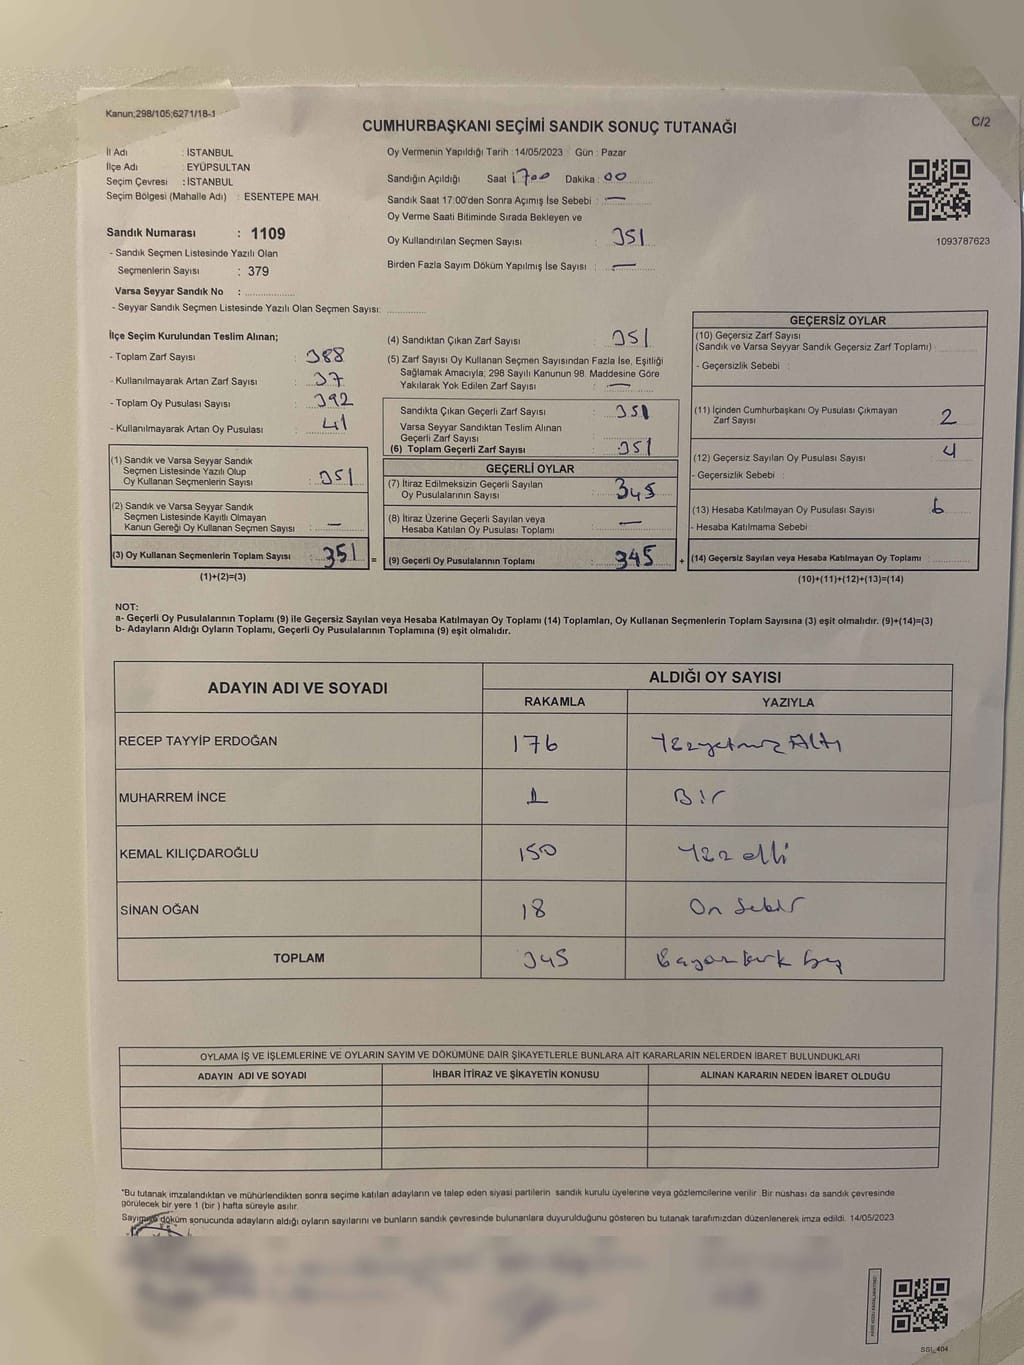 Kanun;298/105;6271/18-1
C/2
CUMHURBAŞKANI SEÇİMİ SANDIK SONUÇ TUTANAĞI
İl Adı : İSTANBUL
İlçe Adı : EYÜPSULTAN
Seçim Çevresi : İSTANBUL
Seçim Bölgesi (Mahalle Adı) : ESENTEPE MAH.
Sandık Numarası : 1109
- Sandık Seçmen Listesinde Yazılı Olan
Seçmenlerin Sayısı : 379
Varsa Seyyar Sandık No :
- Seyyar Sandık Seçmen Listesinde Yazılı Olan Seçmen Sayısı:
Oy Vermenin Yapıldığı Tarih : 14/05/2023 Gün : Pazar
Sandığın Açıldığı Saat 1700 Dakika : 00
Sandık Saat 17:00'den Sonra Açımış İse Sebebi : —
Oy Verme Saati Bitiminde Sırada Bekleyen ve
Oy Kullandırılan Seçmen Sayısı : 351
Birden Fazla Sayım Döküm Yapılmış İse Sayısı : —
1093787623
İlçe Seçim Kurulundan Teslim Alınan;
- Toplam Zarf Sayısı : 388
- Kullanılmayarak Artan Zarf Sayısı : 37
- Toplam Oy Pusulası Sayısı : 392
- Kullanılmayarak Artan Oy Pusulası : 41
(1) Sandık ve Varsa Seyyar Sandık
Seçmen Listesinde Yazılı Olup
Oy Kullanan Seçmenlerin Sayısı : 351
(2) Sandık ve Varsa Seyyar Sandık
Seçmen Listesinde Kayıtlı Olmayan
Kanun Gereği Oy Kullanan Seçmen Sayısı : —
(3) Oy Kullanan Seçmenlerin Toplam Sayısı : 351 =
(1)+(2)=(3)
(4) Sandıktan Çıkan Zarf Sayısı : 351
(5) Zarf Sayısı Oy Kullanan Seçmen Sayısından Fazla İse, Eşitliği
Sağlamak Amacıyla; 298 Sayılı Kanunun 98. Maddesine Göre
Yakılarak Yok Edilen Zarf Sayısı : —
Sandıkta Çıkan Geçerli Zarf Sayısı : 351
Varsa Seyyar Sandıktan Teslim Alınan
Geçerli Zarf Sayısı :
(6) Toplam Geçerli Zarf Sayısı : 351
GEÇERLİ OYLAR
(7) İtiraz Edilmeksizin Geçerli Sayılan
Oy Pusulalarının Sayısı : 345
(8) İtiraz Üzerine Geçerli Sayılan veya
Hesaba Katılan Oy Pusulası Toplamı : —
(9) Geçerli Oy Pusulalarının Toplamı : 345 +
GEÇERSİZ OYLAR
(10) Geçersiz Zarf Sayısı
(Sandık ve Varsa Seyyar Sandık Geçersiz Zarf Toplamı) :
- Geçersizlik Sebebi :
(11) İçinden Cumhurbaşkanı Oy Pusulası Çıkmayan
Zarf Sayısı : 2
(12) Geçersiz Sayılan Oy Pusulası Sayısı : 4
- Geçersizlik Sebebi :
(13) Hesaba Katılmayan Oy Pusulası Sayısı : 6
- Hesaba Katılmama Sebebi :
(14) Geçersiz Sayılan veya Hesaba Katılmayan Oy Toplamı :
(10)+(11)+(12)+(13)=(14)
NOT:
a- Geçerli Oy Pusulalarının Toplamı (9) ile Geçersiz Sayılan veya Hesaba Katılmayan Oy Toplamı (14) Toplamları, Oy Kullanan Seçmenlerin Toplam Sayısına (3) eşit olmalıdır. (9)+(14)=(3)
b- Adayların Aldığı Oyların Toplamı, Geçerli Oy Pusulalarının Toplamına (9) eşit olmalıdır.
ADAYIN ADI VE SOYADI ALDIĞI OY SAYISI
RAKAMLA YAZIYLA
RECEP TAYYİP ERDOĞAN 176 Yüzyetmiş Altı
MUHARREM İNCE 1 Bir
KEMAL KILIÇDAROĞLU 150 Yüz elli
SİNAN OĞAN 18 On Sekiz
TOPLAM 345 kırk beş
OYLAMA İŞ VE İŞLEMLERİNE VE OYLARIN SAYIM VE DÖKÜMÜNE DAİR ŞİKAYETLERLE BUNLARA AİT KARARLARIN NELERDEN İBARET BULUNDUKLARI
ADAYIN ADI VE SOYADI İHBAR İTİRAZ VE ŞİKAYETİN KONUSU ALINAN KARARIN NEDEN İBARET OLDUĞU
"Bu tutanak imzalandıktan ve mühürlendikten sonra seçime katılan adayların ve talep eden siyasi partilerin sandık kurulu üyelerine veya gözlemcilerine verilir. Bir nüshası da sandık çevresinde
görülecek bir yere 1 (bir ) hafta süreyle asılır.
Sayım ve döküm sonucunda adayların aldığı oyların sayılarını ve bunların sandık çevresinde bulunanlara duyurulduğunu gösteren bu tutanak tarafımızdan düzenlenerek imza edildi. 14/05/2023
SSI_404